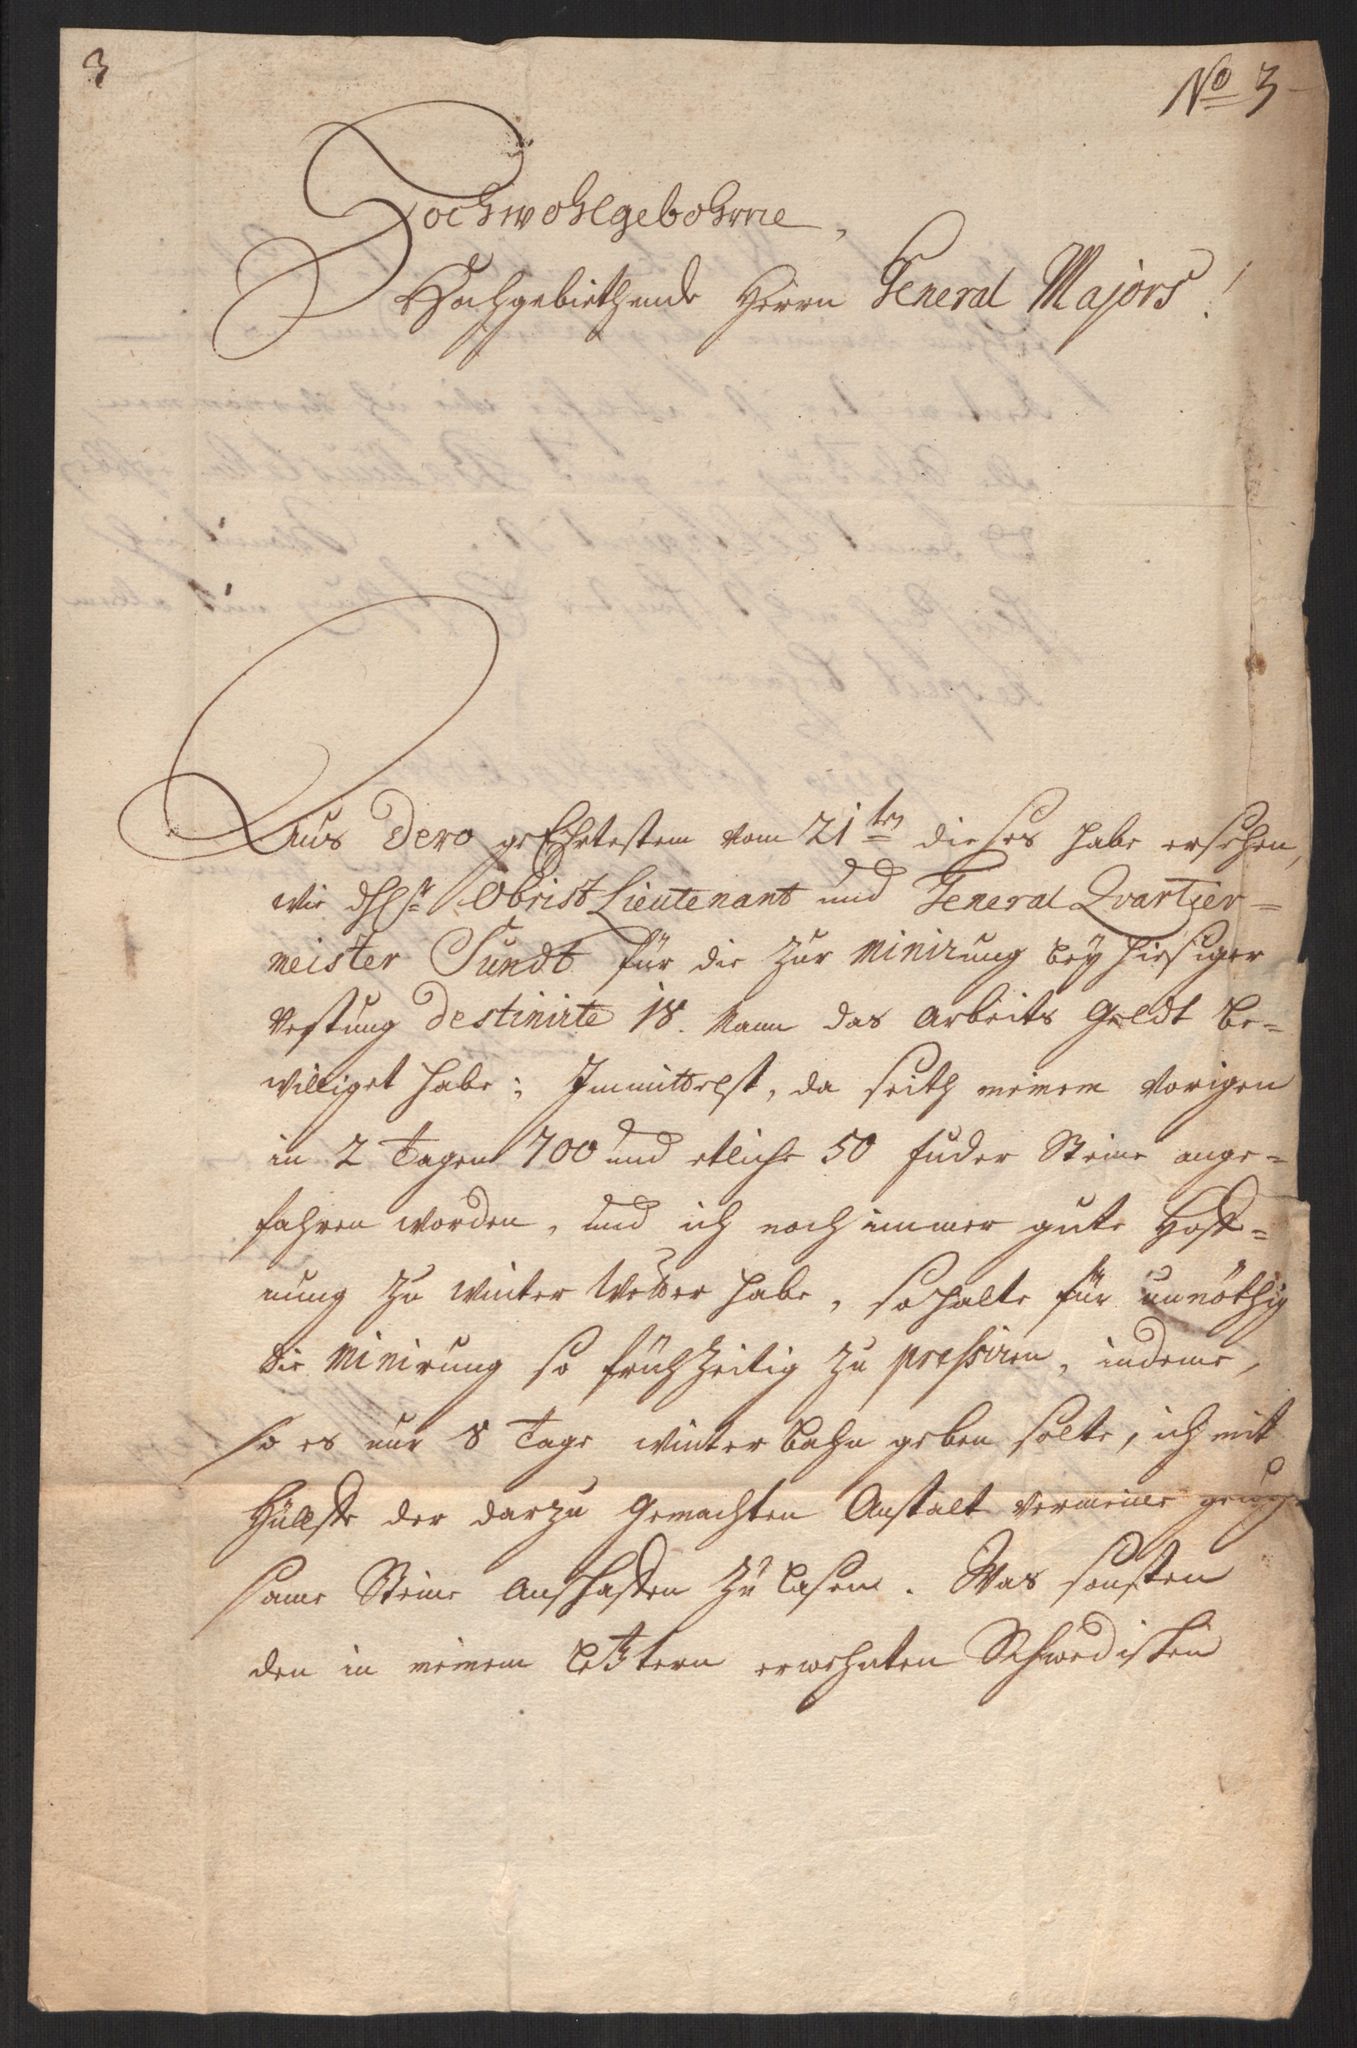 3
No 3
Hochwohlgebohrne,
Hochgebiethende Herrn General Majors!
Aus Dero geEhrtestem vom 21ten dieses habe ersehen,
wie Obrist Lieutenant und General Qvartier-
meister Sundt für die zur Minirung bey hiesiger
Vestung Destinirte 18. Mann das Arbeits Geldt be-
williget habe; Immittelst, da seith meinem Vorigen
in 2 Tagen 700 und etliche 50 fuder Steine ange-
fahren worden, und ich noch immer gute Hoff-
nung zu Winter Wetter habe, so halte für unnöthig
die Minirung so frühzeitig zu pressiren, indeme,
so es nur 8 Tage winterbahn geben solte, ich mit
Hülffe der darzu Gemachten Anstalt vermeine genug-
same Steine Anschaffen zu lasen. Was sonsten
den in meinem letztern erwehnten Schwedischen